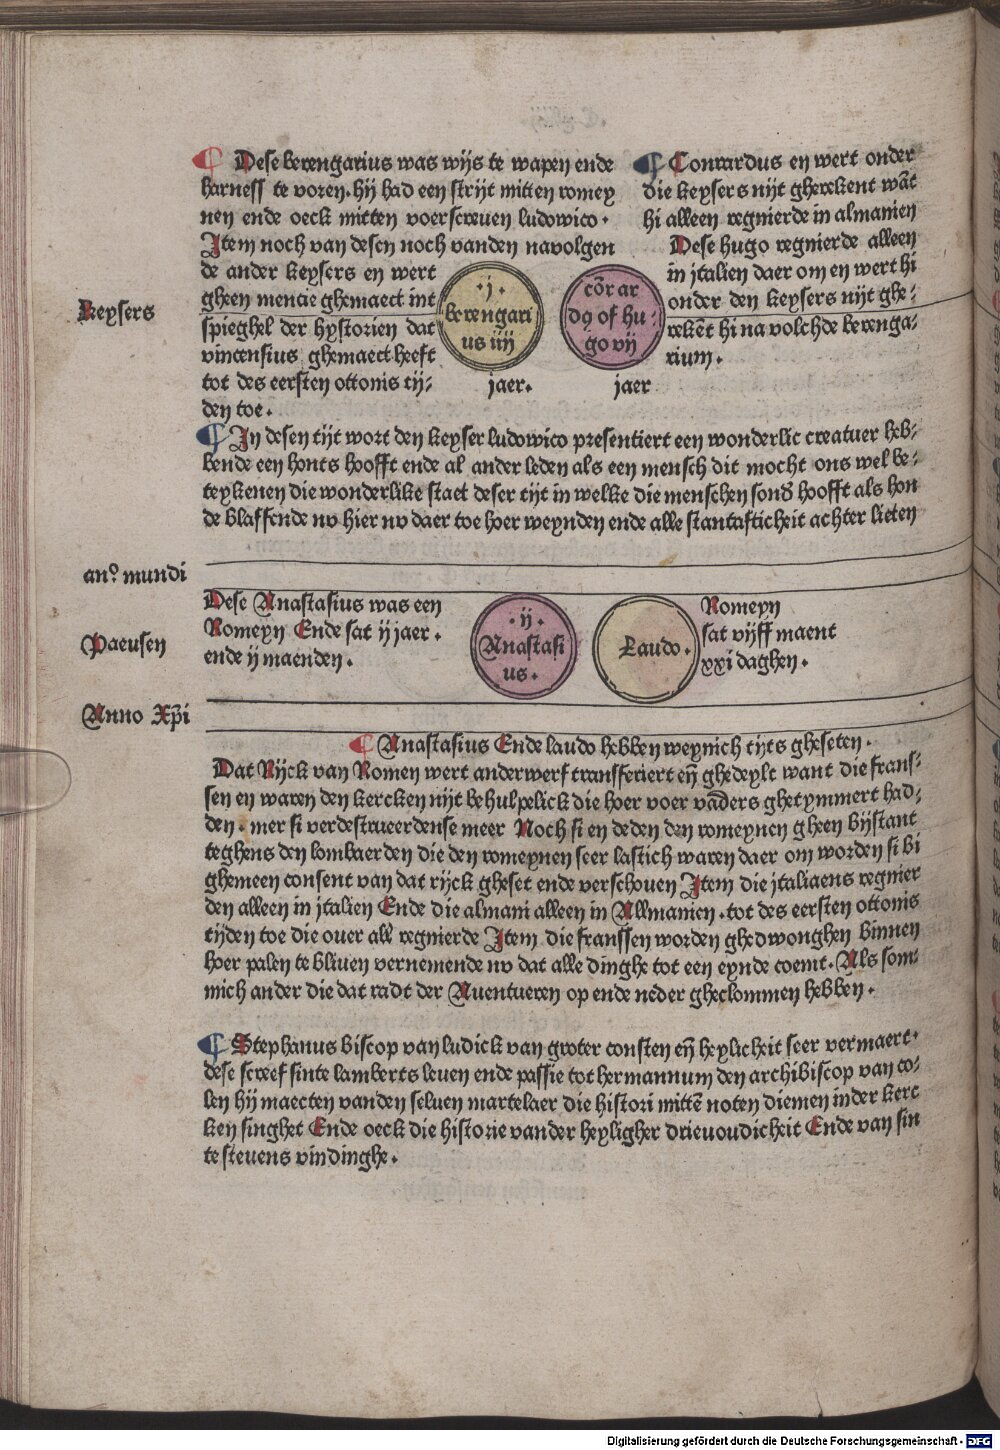 ¶ Dese berengarius was wijs te wapen ende
harness te voren. hij had een strijt mitten romey
nen ende oeck mitten voerscreuen ludowico.
Item noch van desen noch vanden navolgen
de ander keysers en wert
gheen mencie ghemaect int
spieghel der hystorien dat
vincensius ghemaect heeft
tot des eersten ottonis tij:
den toe.
Keysers
.j.
berengari
us iiij
jaer.
cōr ar
dꝯ of hu:
go vij
jaer
¶ Conrardus en wert onder
die keysers nijt gherekent wāt
hi alleen regnierde in almanien
Dese hugo regnierde alleen
in jtalien daer om en wert hi
onder den keysers nijt ghe:
rekēt hi na volchde berenga:
rium.
¶ In desen tijt wort den keyser ludowico presentiert een wonderlic creatuer heb:
bende een honts hoofft ende al ander leden als een mensch dit mocht ons wel be:
teykenen die wonderlike staet deser tijt in welke die menschen sonđ hoofft als hon
de blaffende nv hier nv daer toe hoer weynden ende alle stantafticheit achter lieten
anº mundi
Paeusen
Anno Xp̄i
Dese Anastasius was een
Romeyn Ende sat ij jaer.
ende ij maenden.
.ij.
Anastasi
us.
Laudo.
Romeyn
sat vijff maent
xxi daghen.
¶ Anastasius Ende laudo hebben weynich tijts gheseten.
Dat Rijck van Romen wert anderwerf transferiert eñ ghedeylt want die frans:
sen en waren den kercken nijt behulpelick die hoer voer vāders ghetymmert had:
den. mer si verdestrueerdense meer Noch si en deden den romeynen gheen bijstant
teghens den lombaerden die den romeynen seer lastich waren daer om worden si bi
ghemeen consent van dat rijck gheset ende verschouen Item die jtaliaens regnier
den alleen in jtalien Ende die almani alleen in Allmanien. tot des eersten ottonis
tijden toe die ouer all regnierde Item die franssen worden ghedwonghen binnen
hoer palen te bliuen vernemende nv dat alle dinghe tot een eynde coemt. Als som:
mich ander die dat radt der Auentueren op ende neder gheclommen hebbēn.
¶ Stephanus biscop van ludick van groter consten eñ heylicheit seer vermaert.
dese screef sinte lamberts leuen ende passie tot hermannum den archibiscop van co:
len hij maecten vanden seluen martelaer die histori mittē noten diemen in der kerc
ken singhet Ende oeck die historie vander heyligher drieuoudicheit Ende van sin
te steuens vindinghe.
Digitalisierung gefördert durch die Deutsche Forschungsgemeinschaft - DFG